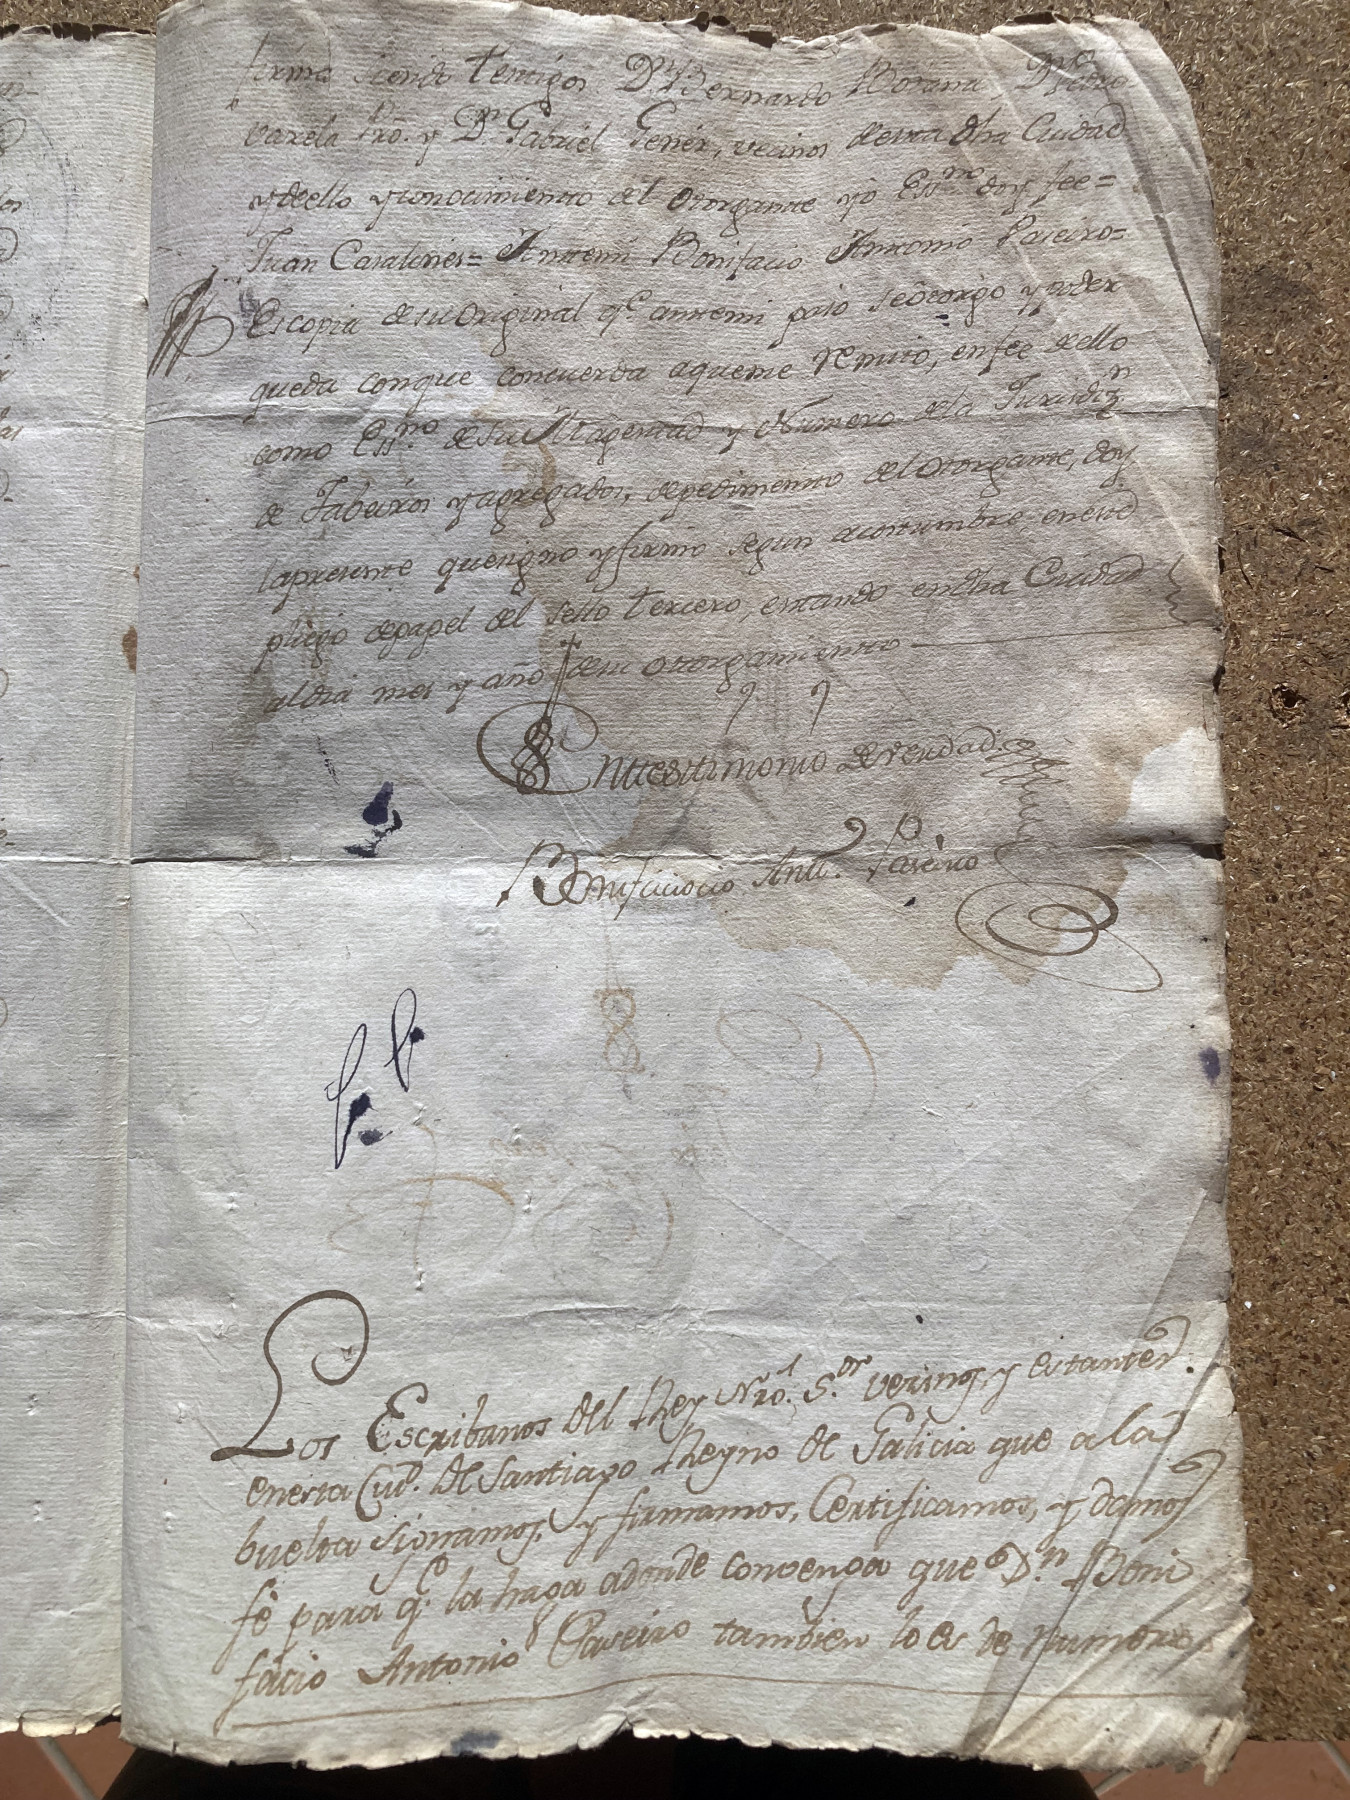 firma siendo testigos Dn. Bernardo Dn. Pedro
varela Pro. y Dn. Gabriel Gener, vecinos desta dha Ciudad
y dello y conocimiento del otorgante yo Essno. doy fee=
Juan Casalines= Antemi Bonifacio Antonio Paseiro=
Es copia de su Original qe. antemi paso se otorgo y poder
queda con que concuerda a que me remito, en fee dello
como Essno. de su Magestad y Numero de la Jurisdizn
de Tabeiros y agregados, de pedimiento del otorgante, doy
la presente que signo y firmo segun acostumbro en este
pliego de papel del sello tercero, estando en dha Ciudad
al dia mes y año de su otorgamiento
En testimonio de verdad.
Bonifaciocio Antt. Paseiro
Los Escribanos del Rey Nro. Sor. vezinos, y estantes
en esta Ciud. de Santiago Reyno de Galicia que a la
buelta signamos, y firmamos, Certificamos, y damos
fê para qe. la haga adonde convenga que Dn. Boni
facio Antonio Paseiro tambien lo es de numero